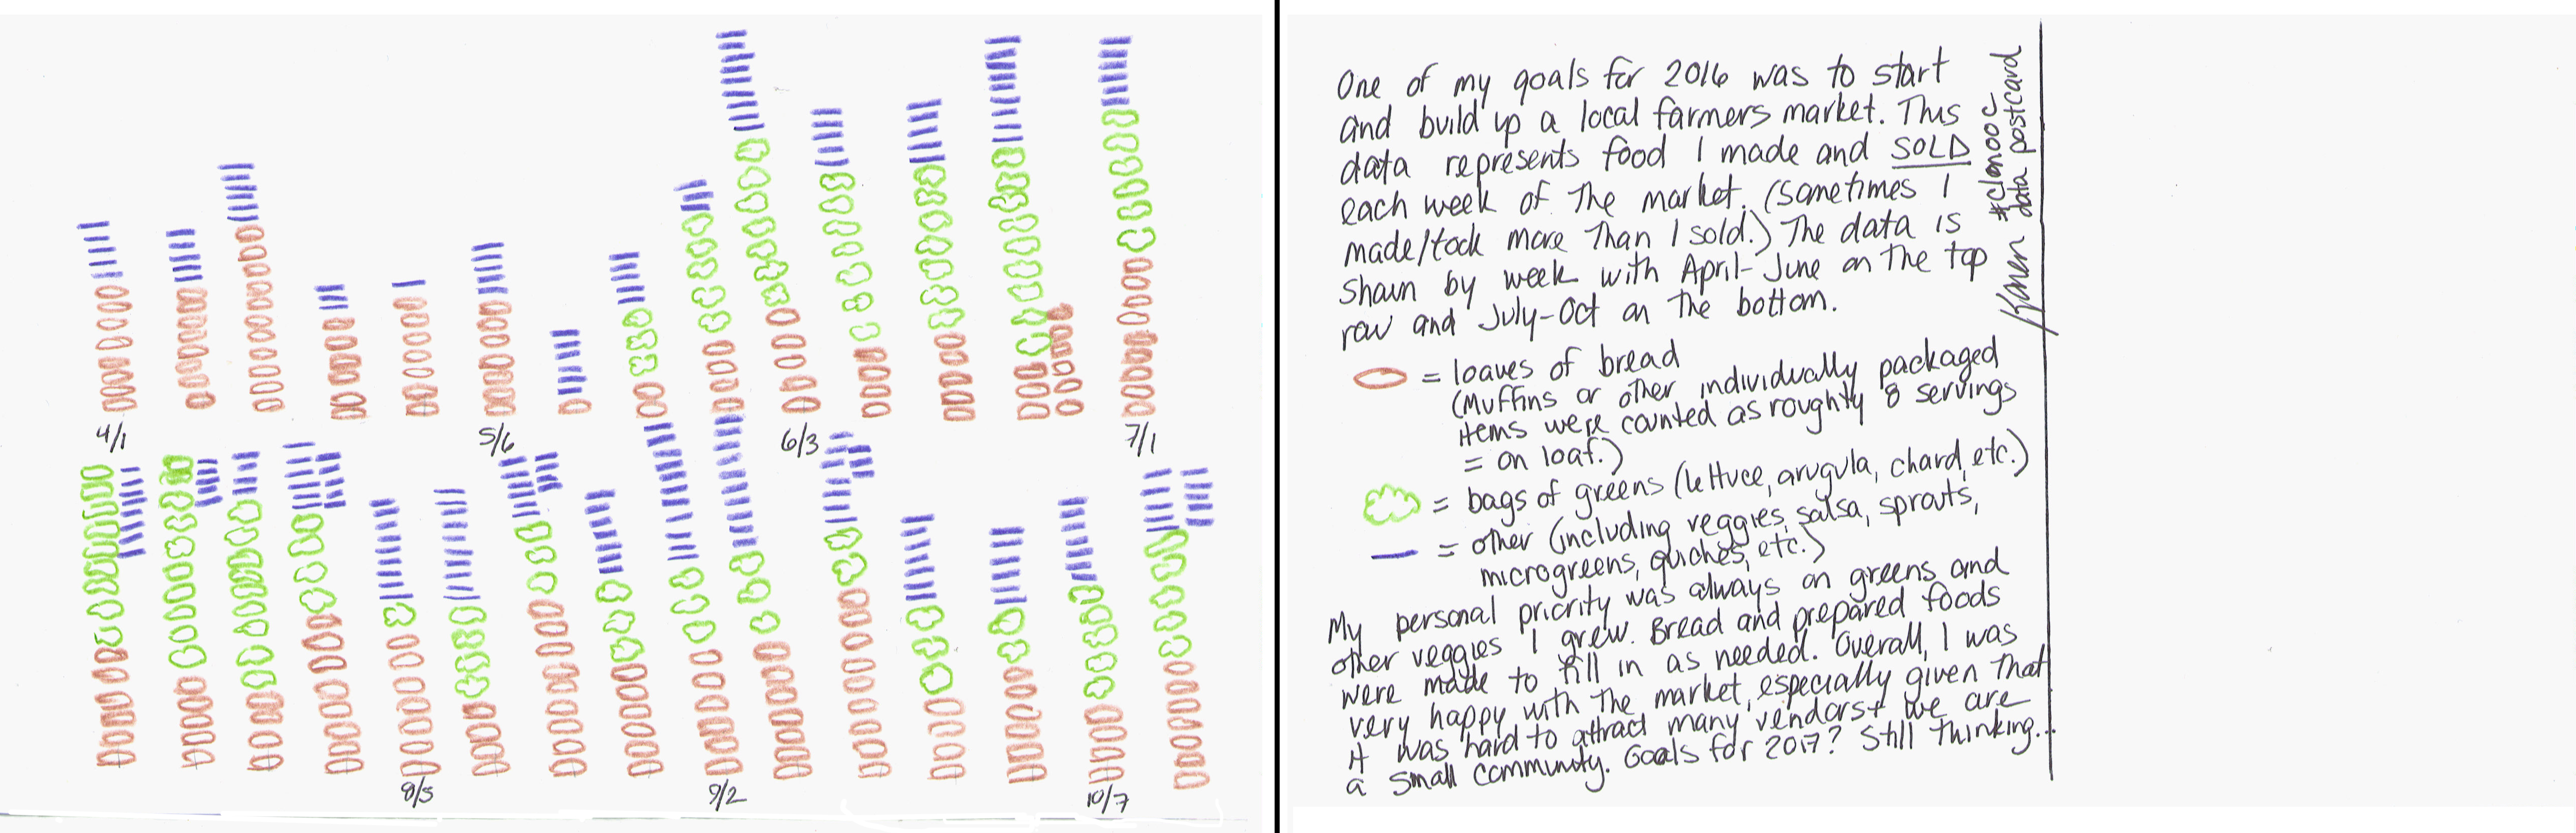 4/1
5/6
6/3
7/1
8/5
9/2
10/7
One of my goals for 2016 was to start
and build up a local farmers market. This
data represents food I made and SOLD
each week of the market. (Sometimes I
made/took more than I sold.) The data is
shown by week with April-June on the top
row and July-Oct on the bottom.
= loaves of bread
(Muffins or other individually packaged
items were counted as roughly 8 servings
= on loaf.)
= bags of greens (lettuce, arugula, chard, etc.)
= other (including veggies, salsa, sprouts,
microgreens, quiches, etc.)
My personal priority was always on greens and
other veggies I grew. Bread and prepared foods
were made to fill in as needed. Overall, I was
very happy with the market, especially given that
it was hard to attract many vendors + we are
a small community. Goals for 2017? Still thinking...
Karen #clmooc
data postcard